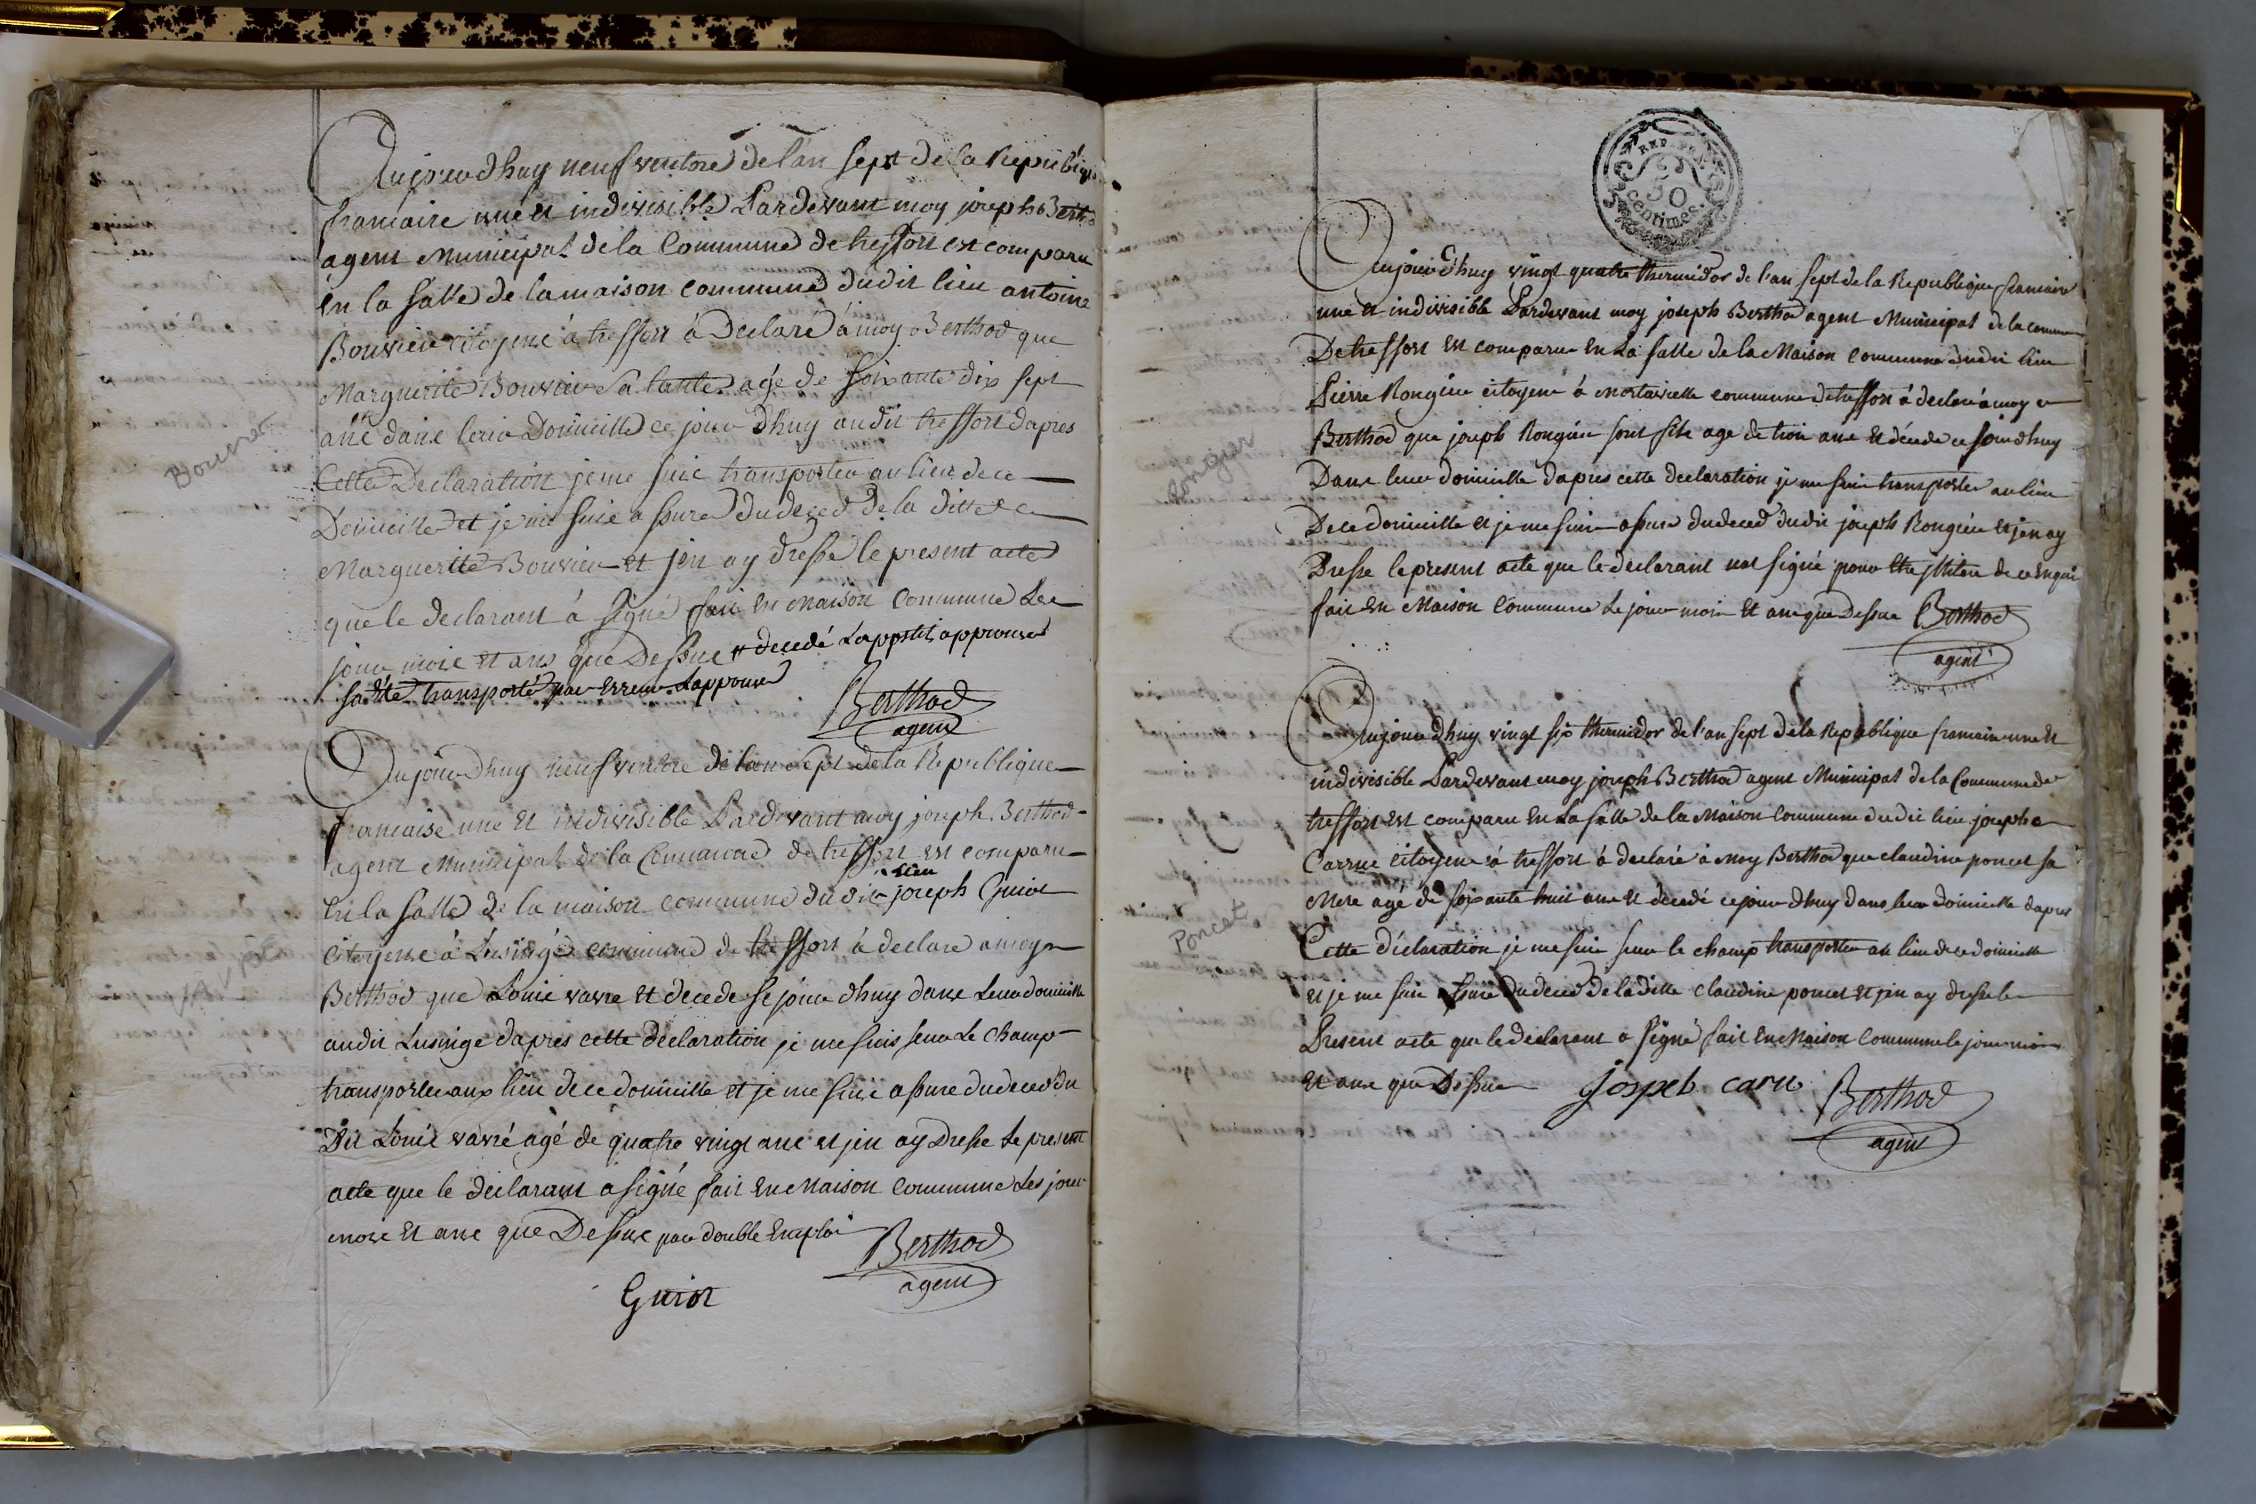 Aujourdhuy neuf ventose de l'an sept de la Republique
francaise une et indivisible Pardevant moy joseph Bertho
agent Municipal de la Commune de tressort est comparu
En la salle de la maison commune dudit lieu antoine
Bouvier citoyens à tressort à Declaré à moy Berthod que
Marguerite Bouvier Sa tante agé de soixante dix sept
ans dans leur Domicille ce jour dhuy audit tressort dapres
Cette Declaration je me suis transporter au lieu de ce
Domicille et je me suis assuré du deced de la ditte
Marguerite Bouvier et jen ay dressé le present acte
que le declarant à signé fait En Maison Commune Les
jour mois et ans que Dessus # decedé Lappostil approuvé
sa ditte transporté par erreur Lapprouve
Berthod
agent
Bouvier
Aujourdhuy neuf ventose de lan sept de la Republique
francaise une et indivisible Pardevant moy joseph Berthod
agent Municipal de la Commune de tressort est comparu
lieu
En la salle de la maison commune dudit joseph Guiot
Citoyens à Lusinge commune de tressort à declaré a moy
Berthod que Louis vavre et decede se jour dhuy dans Leur domicille
audit Lusinge dapres cette declaration je me suis sur Le Champ
transporter aux lieu de ce domicille et je me suis assure du deced du
Dit Louis vavré agé de quatre vingt ans et jen ay Dresse Le present
acte que le declarant a signé fait En Maison Commune Les jour
mois et ans que Dessus par double Emploi
Berthod
agent
Guiot
VAVRE
REP. FRA.
50
centimes.
Aujourdhuy vingt quatre thermidor de l'an sept de la Republique francaise
une et indivisible Pardevant moy joseph Berthod agent Municipal de la commune
De tressort est comparu En La salle de la Maison Commune dudit lieu
Pierre Rongier citoyens à commune de tressort à declaré à moy
Berthod que joseph Rongier sont fils age de trois ans et décede ce jourdhuy
Dans leur domicille dapres cette declaration je me suis transporter au lieu
De ce domicille et je me suis assure du deced dudit joseph Rongier et jen ay
Dresse le present acte que le declarant na signé pour Etre jllitere de ce Enquis
fait En Maison Commune Le jour mois et ans que Dessus Berthod
agent
Rongier
Aujourdhuy vingt six thermidor de l'an sept de la Republique francaise une et
indivisible Pardevant moy joseph Berthod agent Municipal de la Commune de
tressort est comparu En La salle de la Maison Commune dudit lieu joseph
Carrue citoyens à tressort à declaré à moy Berthod que claudine poncet sa
Mere agé de soixante huit ans et decedé ce jour dhuy dans leur domicille dapres
Cette déclaration je me suis sur le champ transporter au lieu de ce domicille
et je me suis assure du deced de la ditte claudine poncet et jen ay dressé le
Present acte que le declarant a signé fait En Maison Commune le jour mois
et ans que Dessus Jospeh caru Berthod
agent
Poncet